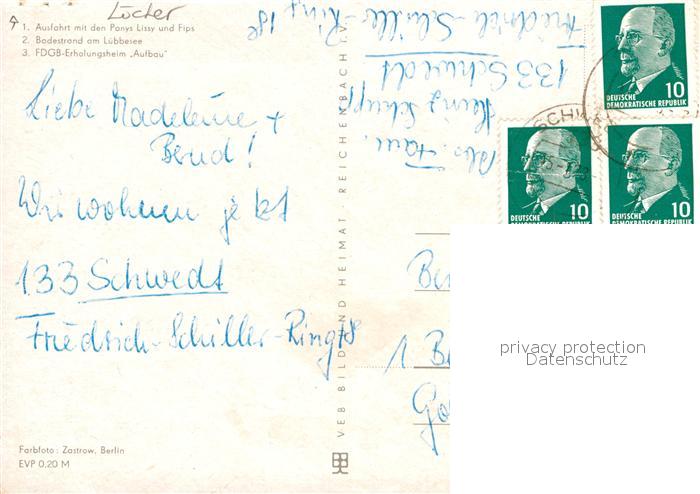 Löcher
1. Ausfahrt mit den Ponys Lissy und Fips
2. Badestrand am Lübbesee
3. FDGB-Erholungsheim „Aufbau“
Liebe Madeleine +
Bernd!
Wir wohnen jetzt
133 Schwedt
Friedrich-Schiller-Ring 18
Farbfoto: Zastrow, Berlin
EVP 0,20 M
VEB BILD UND HEIMAT · REICHENBACH I.V.
Abs. Fam.
Heinz
133 Schwedt
Friedrich-Schiller-Ring 18
10
DEUTSCHE
DEMOKRATISCHE REPUBLIK
10
DEUTSCHE
DEMOKRATISCHE REPUBLIK
10
DEUTSCHE
DEMOKRATISCHE REPUBLIK
Be
1 B
Go
privacy protection
Datenschutz